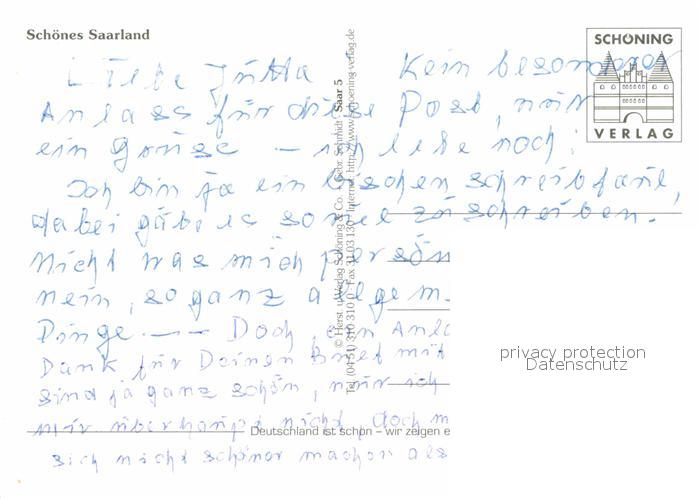 Schönes Saarland
SCHÖNING
VERLAG
Liebe Jutta Kein besonderer
Anlass für diese Post, nur
ein Grüße – ich lebe noch!
Ich bin ja ein bischen schreibfaul,
dabei gäbe es soviel zu schreiben.
Nicht was mich persön
nein, so ganz allgem.
Dinge. — Doch, ein Anla
Dank für Deinen Brief mit
sind ja ganz schön, nur ich
mir überhaupt nicht, doch m
sich nicht schöner machen als
© Herst. u. Verlag Schöning & Co. + Gebr. Schmidt Saar 5
Tel. (04 51) 310 310 Fax 31 03 130 Internet: http://www.schoening-verlag.de
Deutschland ist schön – wir zeigen e
privacy protection
Datenschutz